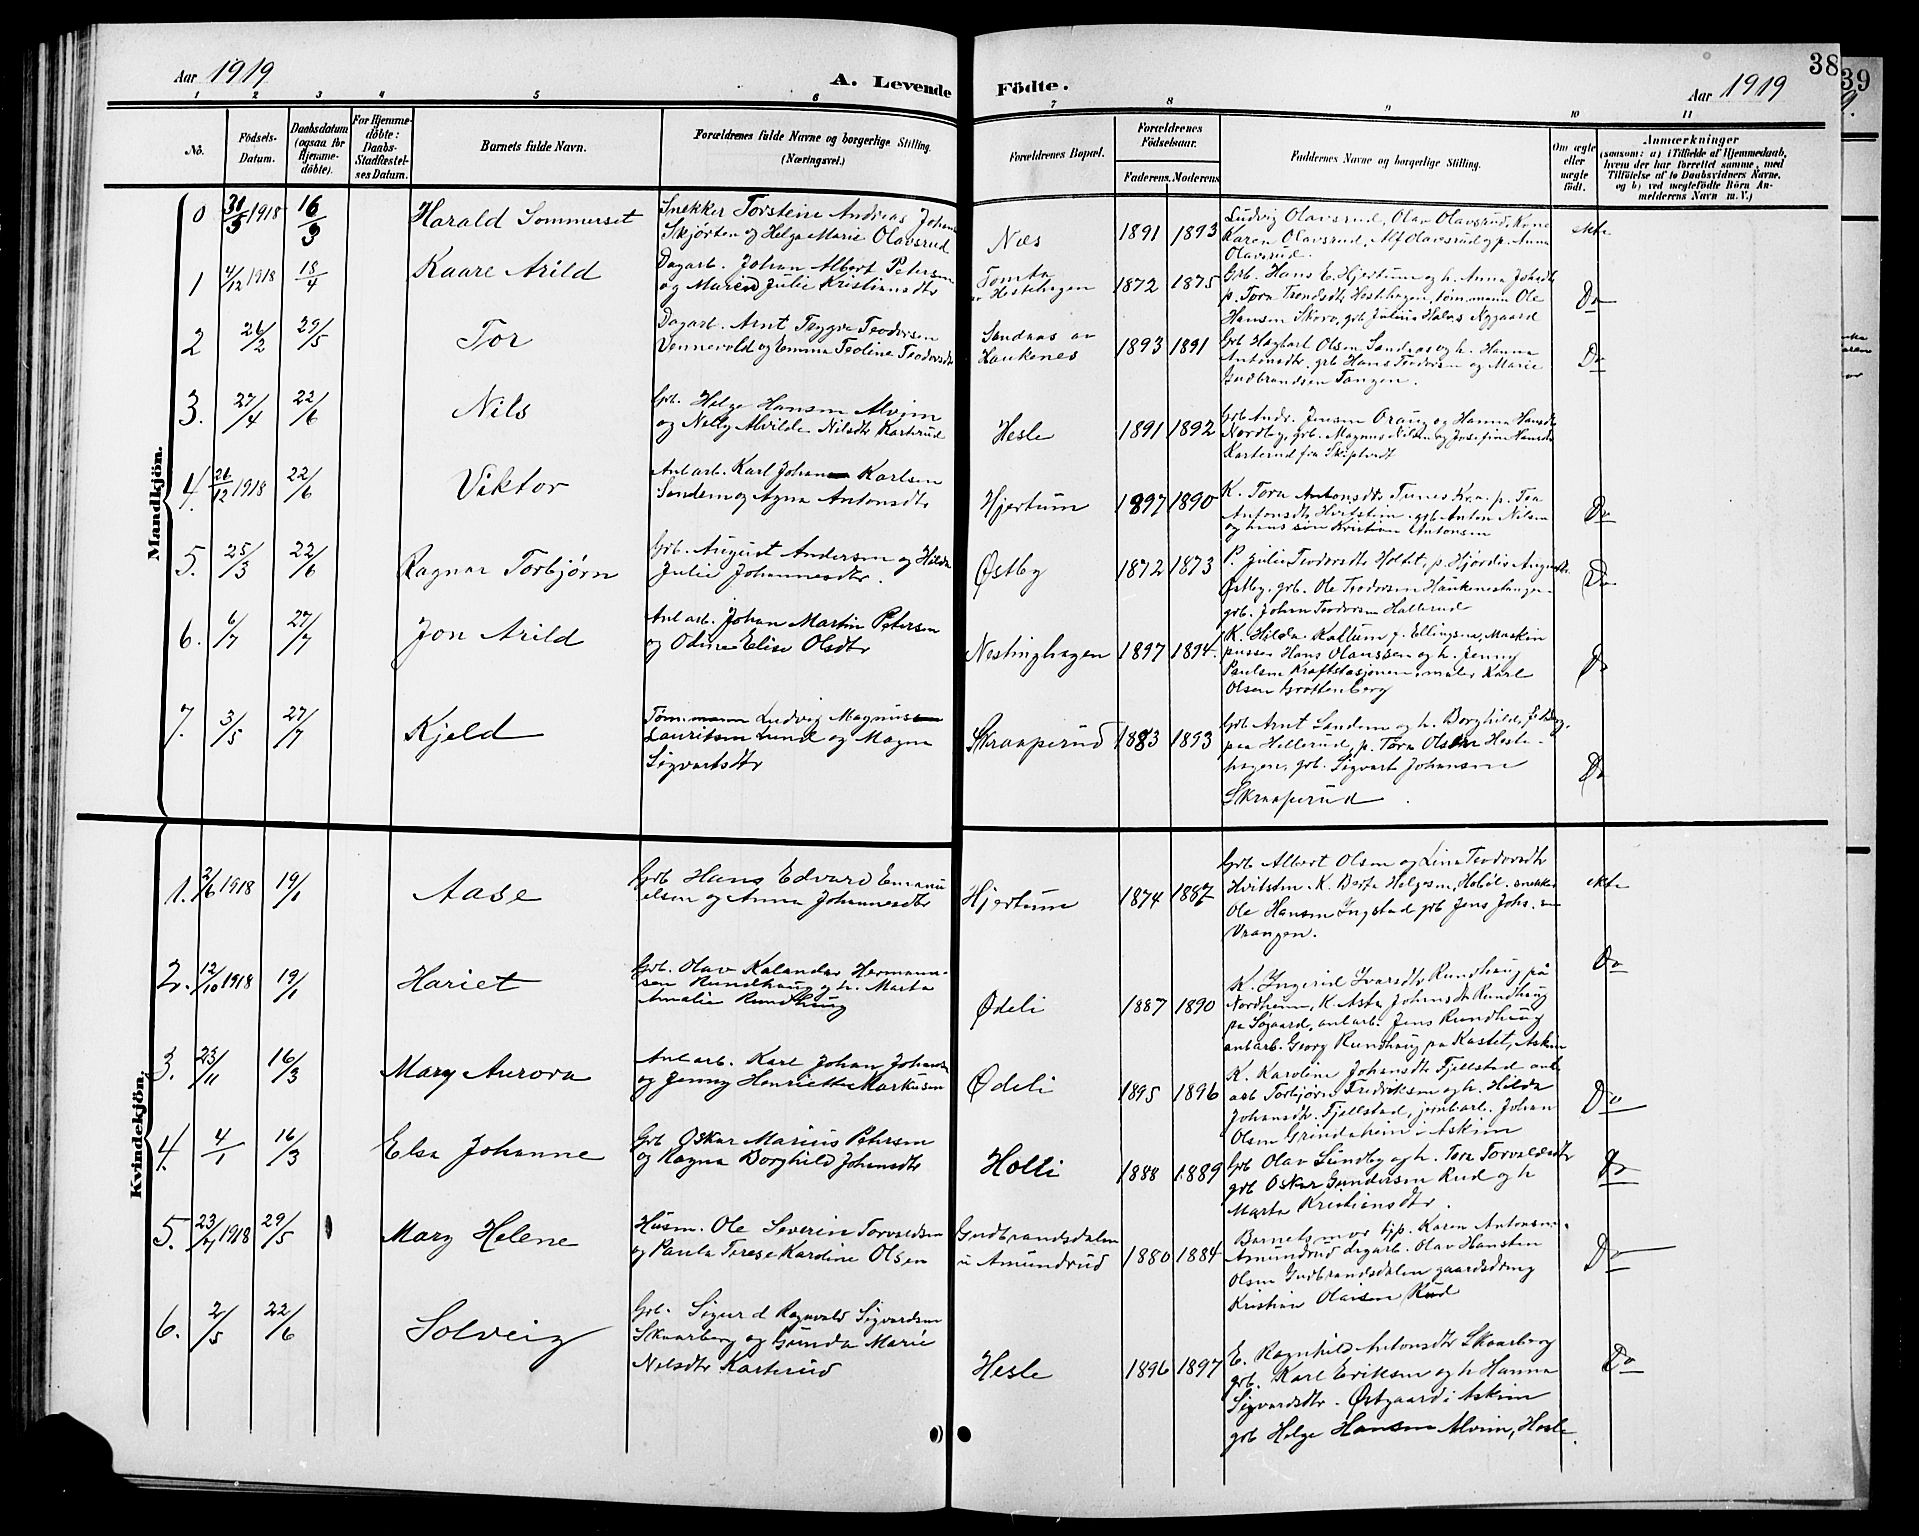 Aar 1919
A. Levende Födte.
Aar 1919
38
39
1 2 3 4 5 6 7 8 9 10 11
No.
Födsels-
Datum.
Daabsdatum
(ogsaa for
Hjemme-
döbte).
For Hjemme-
döbte:
Daabs-
Stadfæstel-
ses Datum.
Barnets fulde Navn.
Forældrenes fulde Navne og borgerlige Stilling.
(Næringsvei.)
Forældrenes Bopæl.
Forældrenes
Födselsaar.
Faderens. Moderens
Faddernes Navne og borgerlige Stilling.
Om ægte
eller
uægte
födt.
Anmærkninger
(saasom: a) i Tilfælde af Hjemmedaab,
hvem der har forrettet samme, med
Tilföielse af to Daabsvidners Navne,
og b) ved uægtefödte Börn An-
melderens Navn m. V.)
Mandkjön.
0 1918 16/3 Harald Sommerset
Snekker Torstein Andreas Johan
Skjørten og Helga Marie Olavsrud
Næs 1891 1893
Ludvig Olavsrud, Olav Olavsrud, Kone
Karen Olavsrud, Alf Olavsrud og p. Anna
Olavsrud.
ekte
1 4/12 1918 18/4 Kaare Arild
Dagarb. Johan Albert Petersen
og Maren Julie Kristiansdtr
Tomta
Hestehagen 1872 1875
Grb. Hans E. Hjertum og h. Anna Johsdtr
p. Tora Trondsdtr Hestehagen, tømmann Ole
Hansen Skorv, grb Julius Halvs Nygaard
Do
2 26/2 29/5 Tor
Dagarb. Arnt Trygve Teodorsen
Vennevold og Emma Teoline Teodorsdtr
Sandaas av
Haukenes 1893 1891
Grb Hagbart Olsen Sandaas og h. Hanna
Antonsdtr. grb Hans Teodorsen og Marie
Gudbrandsen Tangen.
Do
3. 27/4 22/6 Nils
Grb. Helge Hansen Alvim
og Nelly Alvilde Nilsdtr Karterud
Hesle 1891 1892
Grb Andr. Jensen Oraug og Hanna Hansdtr
Nordby, grb. Magnus Nilsen og Josefine Hansdtr
Karterud fra Skiptvedt
4. 26/12 1918 22/6 Viktor
Anl arb. Karl Johan Karlsen
Sandem og Agna Antonsdtr
Hjertum 1897 1890
K. Tora Antonsdtr Tunes Kra. p. Tea
Antonsdtr Hvitstein. grb. Anton Nilsen
og hans søn Kristian Antonsen
Do
5. 25/3 22/6 Ragnar Torbjørn
Grb. August Andersen og Hilda
Julie Johannesdtr.
Østby 1872 1873
P. Julie Teodorsdtr Holtet, p. Hjørdis Augustsdtr
Østby, grb. Ole Teodorsen Haukenestangen
grb. Johan Teodorsen Hallerud
Do
6. 6/7 27/7 Jon Arild
Anl arb. Johan Martin Petersen
og Odine Elise Olsdtr
Nestinghagen 1897 1894.
K. Hilda Kaltum f. Ellingsen, Maskin
pusser Hans Olaussen og h. Jenny
Paulsen Kraftstasjonen, maler Karl
Olsen Grottenberg
Do
7. 3/5 27/7 Kjeld
Tømmann Ludvig Magnus
Lauritsen Lund og Magna
Sigvartsdtr
Skraaperud 1883 1893
Grb Arnt Sandem og h. Borghild,
paa Hellerud, p. Tora Olsen Hesle-
hagen, grb. Sigvart Johansen
Skraaperud.
Do
Kvindekjön.
1. 2/6 1918 19/1 Aase
Grb Hans Edvard Emanu
elsen og Anna Johannesdtr
Hjertum 1874 1887
Grb Albert Olsen og Lina Teodorsdtr
Hvitsten. K. Berta Helgesen, Hobøl. snekker
Ole Hansen Ingstad grb Jens Johs.
Vrangen.
ekte
2. 12/10 1918 19/1 Hariet
Grb. Olav Kalandar Hermann-
sen Rundhaug og h. Marta
Amalie Rundhaug
Ødeli 1887 1890
K. Ingerid Ivarsdtr Rundhaug på
Nordheim, K. Asta Johansdtr Rundhaug
pa Søgaard, anl arb. Jens Rundhaug
anl arb. Georg Rundhaug pa Kastet, Askim
Do
3. 23/11 16/3 Mary Aurora
Anl arb. Karl Johan Johansen
og Jenny Henriette Markussen
Ødeli 1895 1896
K. Karoline Johansdtr Fjellstad anl
arb Torbjørn Fredriksen og h. Hilda
Johansdtr. Fjellstad, jernbarb. Johan
Olsen Grindaheim i Askim
Do
4. 4/1 16/3 Elsa Johanne
Grb Oskar Marius Petersen
og Ragna Borghild Johansdtr
Holli 1888 1889
Grb Olav Sundby og h. Tora Torvaldsdtr
grb Oskar Gundersen Rud og h
Marta Kristiansdtr.
Do
5. 23/7 1918 29/5 Mary Helene
Husm. Ole Severin Torvaldsen
og Paula Terese Kardine Olsen
Gudbrandsdalen
u Amundrud 1880 1884
Barnets mor hjp. Karen Antonsen
Amundrud dagarb. Olav Hansten
Olsen Gudbrandsdalen gaardsdreng
Kristian Olaisen Rud
Do
6. 2/5 22/6 Solveig
Grb. Sigurd Ragnvald Sigvardsen
Skaarberg og Gunda Marie
Nilsdtr Karterud
Hesle 1896 1897
E. Ragnhild Antonsdtr Skaarberg
grb. Karl Eriksen og h Hanna
Sigvardsdtr. Østgaard i Askim
grb Helge Hansen Alvim, Hesle.
Do